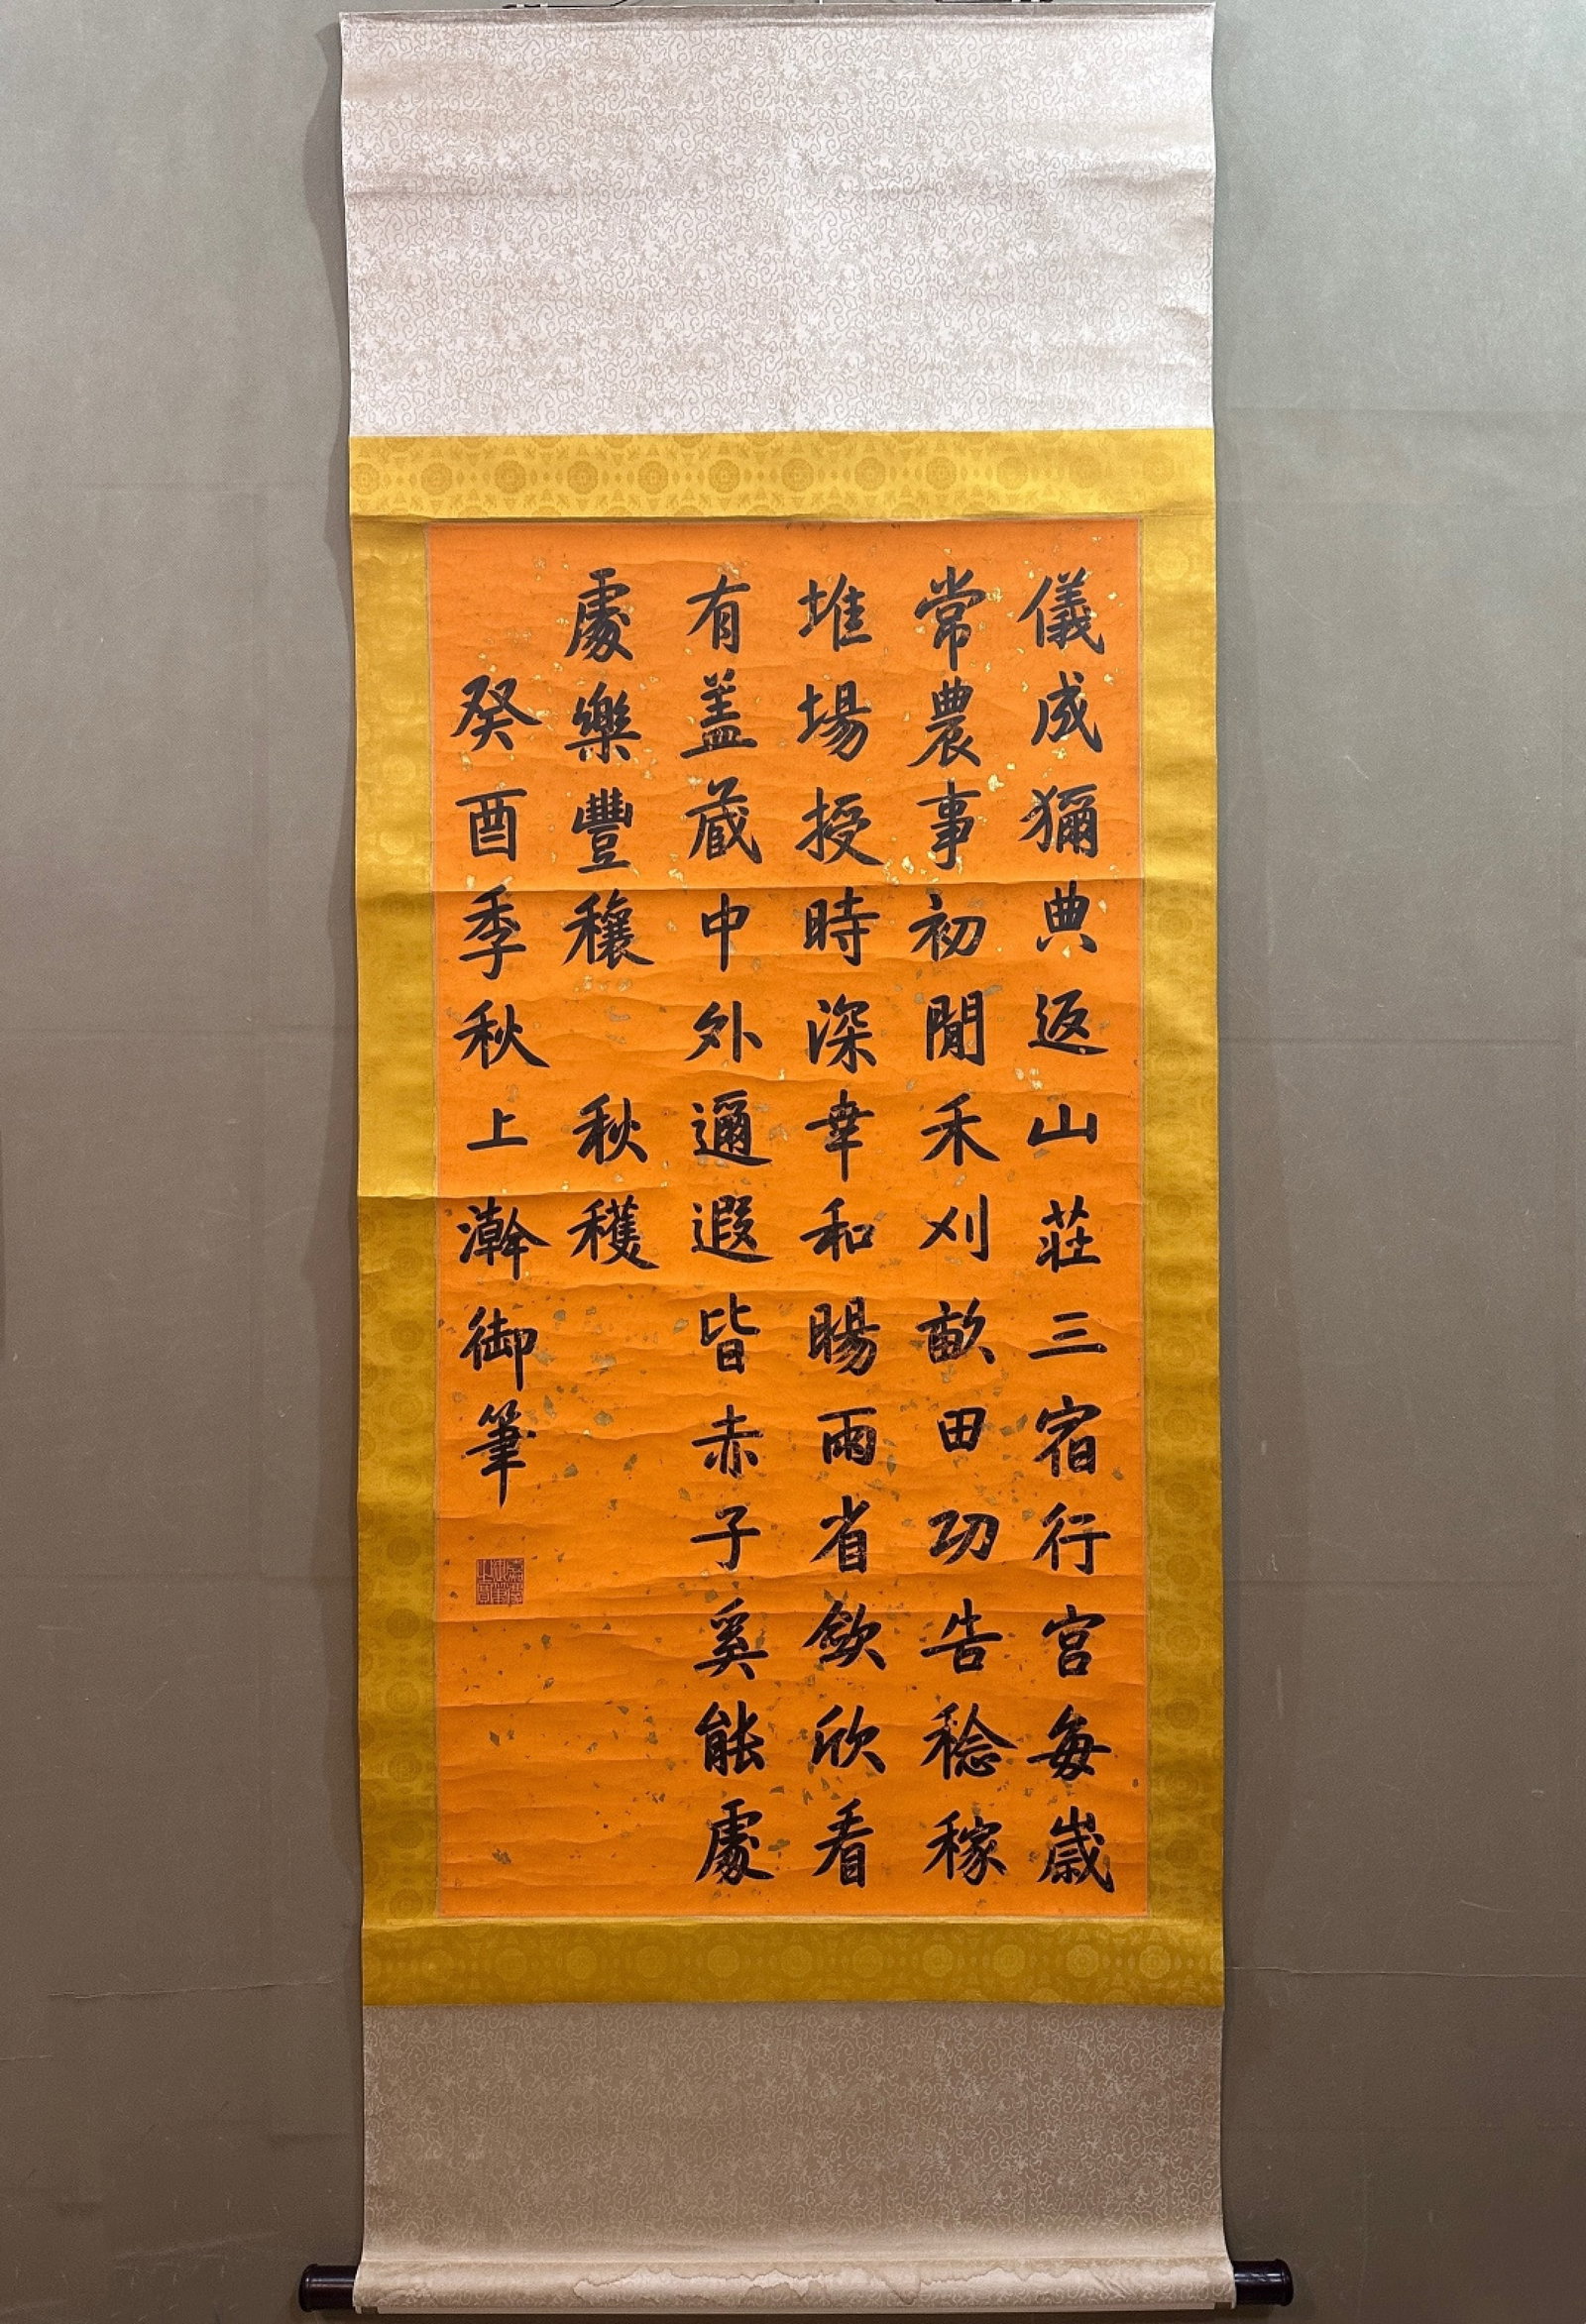 儀成獮典返山莊三宿行宮每歲
常農事初閒禾刈畝田功告稔稼
堆場授時深幸和暘雨省斂欣看
有蓋蔵中外邇遐皆赤子奚能處
處樂豐穰 秋穫
癸酉季秋上澣御筆